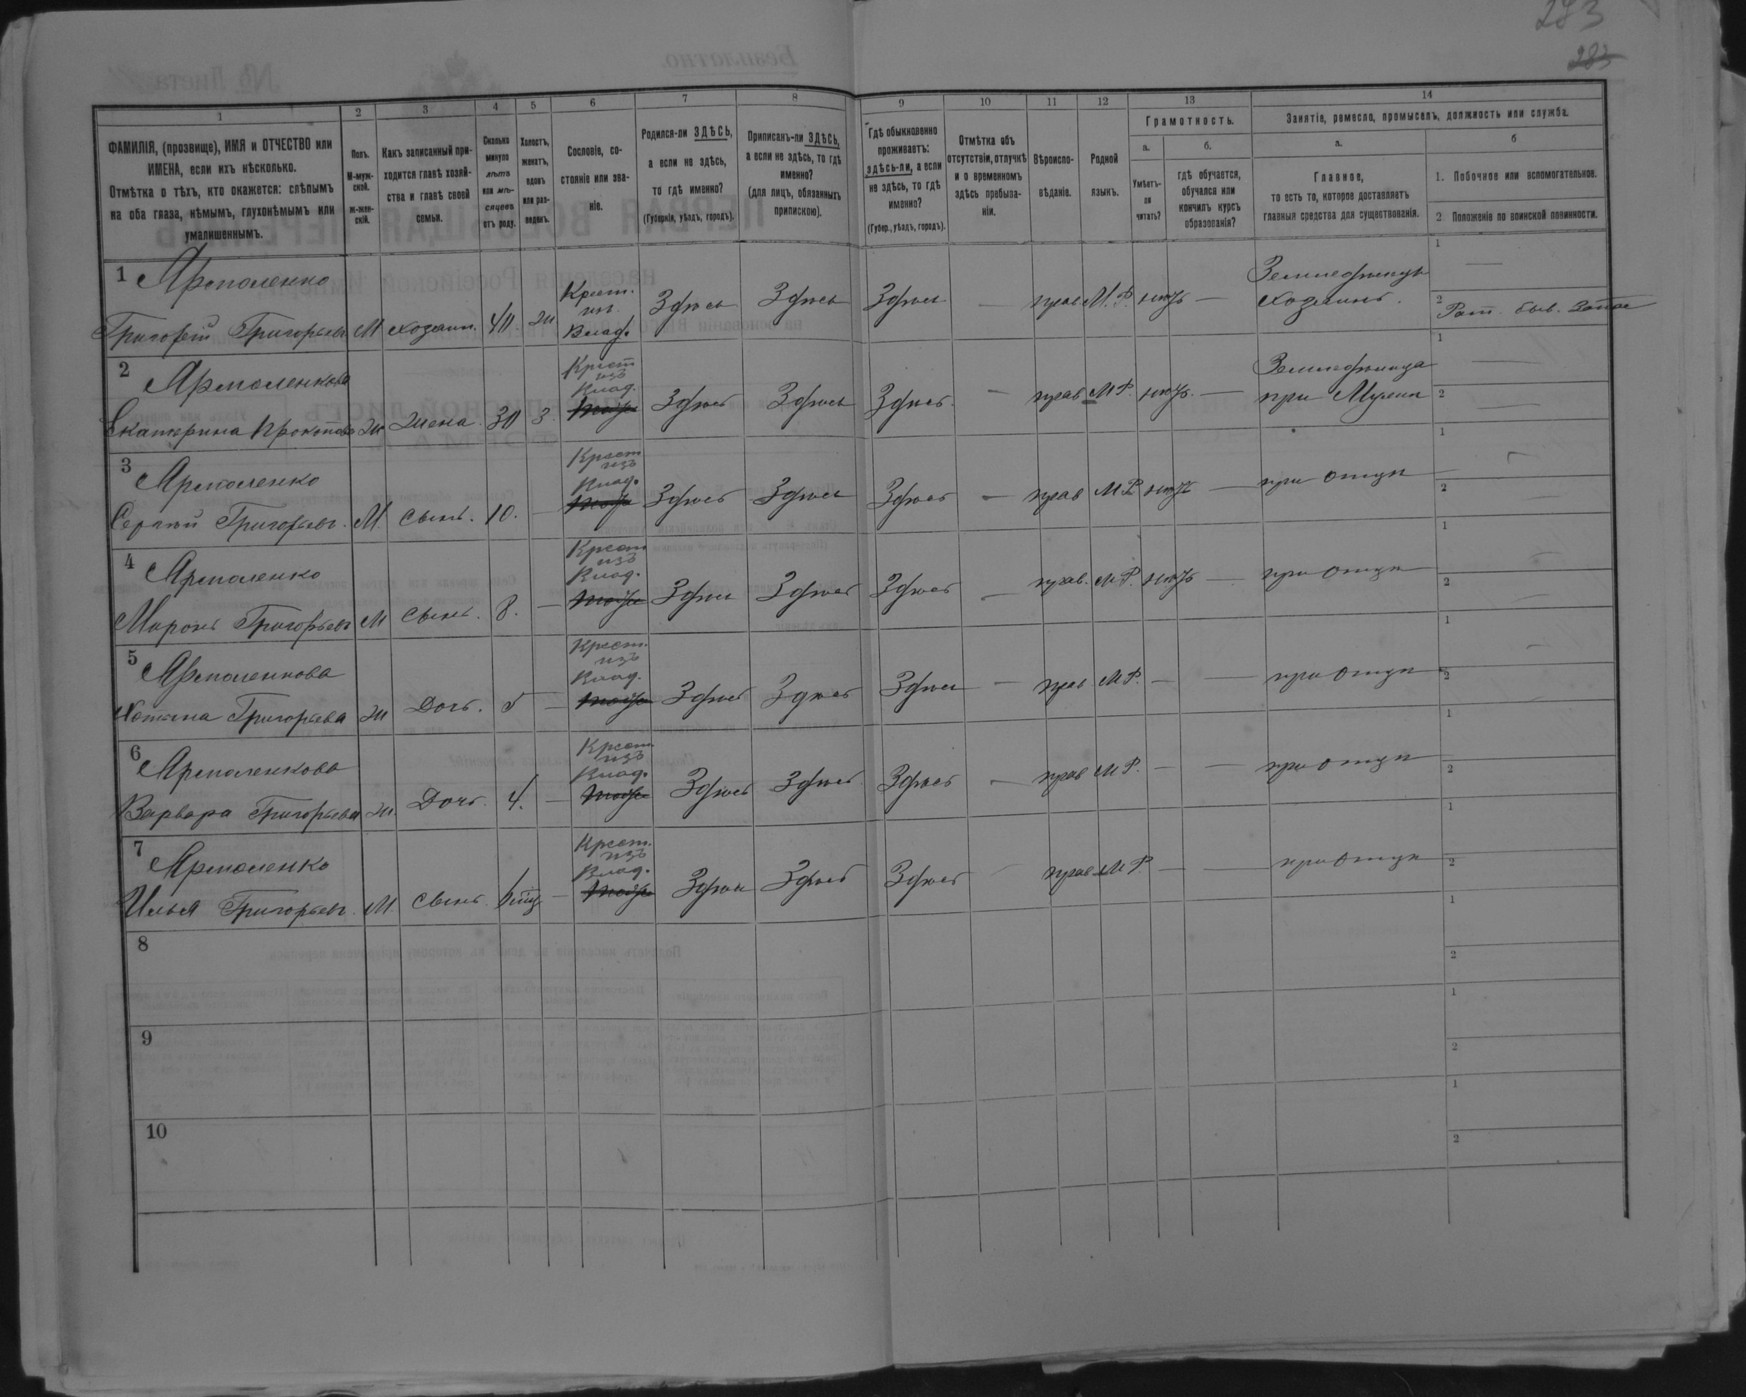 283
283
1
2
3
4
5
6
7
8
9
10
11
12
13
14
ФАМИЛІЯ, (прозвище), ИМЯ и ОТЧЕСТВО или ИМЕНА, если ихъ нѣсколько.
Отмѣтка о тѣхъ, кто окажется: слѣпымъ на оба глаза, нѣмымъ, глухонѣмымъ или умалишеннымъ.
Полъ.
М-мужской.
ж-женскій.
Какъ записанный приходится главѣ хозяйства и главѣ своей семьи.
Сколько минуло лѣтъ или мѣсяцевъ отъ роду.
Холостъ, женатъ, вдовъ или разведенъ.
Сословіе, состояніе или званіе.
Родился-ли ЗДѢСЬ, а если не здѣсь, то гдѣ именно?
(Губернія, уѣздъ, городъ).
Приписанъ-ли ЗДѢСЬ, а если не здѣсь, то гдѣ именно?
(для лицъ, обязанныхъ припискою).
Гдѣ обыкновенно проживаетъ: здѣсь-ли, а если не здѣсь, то гдѣ именно?
(Губер., уѣздъ, городъ).
Отмѣтка объ отсутствіи, отлучкѣ и о временномъ здѣсь пребываніи.
Вѣроисповѣданіе.
Родной языкъ.
Грамотность.
а.
Умѣетъ-ли читать?
б.
гдѣ обучается, обучался или кончилъ курсъ образованія?
Занятіе, ремесло, промыселъ, должность или служба.
а.
Главное,
то есть то, которое доставляетъ главныя средства для существованія.
б
1. Побочное или вспомогательное.
2. Положеніе по воинской повинности.
1 Ярмоленко
Григорій Григорьевъ М хозяин. 40. ж Крест. из Влад. Здѣсь Здѣсь Здѣсь — прав М.Р. нѣтъ — Земледѣлецъ хозяинъ.
1 —
2 Рат. быв. Запас
2 Ярмоленкова
Екатерина Прокопова ж жена 30 з Крест изъ Влад. Здѣсь Здѣсь Здѣсь — прав М.Р. нѣтъ — Земледѣлица при Мужѣ
1 —
2 —
3 Ярмоленко
Сергѣй Григорьевъ. М. сынъ. 10. — Крест изъ Влад. Здѣсь Здѣсь Здѣсь — прав М.Р. нѣтъ — при отцѣ
1 —
2
4 Ярмоленко
Миронъ Григорьевъ М сынъ. 8. — Крест изъ Влад. Здѣсь Здѣсь Здѣсь — прав. М.Р. нѣтъ — при отцѣ
1
2
5 Ярмоленкова
Григорьева ж Дочь. 5 — Крест. изъ Влад. Здѣсь Здѣсь Здѣсь — прав М.Р. — — при отцѣ
1
2
6 Ярмоленкова
Варвара Григорьева ж. Дочь. 4. — Крест изъ Влад. Здѣсь Здѣсь Здѣсь — прав М.Р. — — при отцѣ
1
2
7 Ярмоленко
Илья Григорьевъ. М сынъ. — Крест. изъ Влад. Здѣсь Здѣсь Здѣсь прав М.Р. — — при отцѣ
1
2
8
1
2
9
1
2
10
1
2